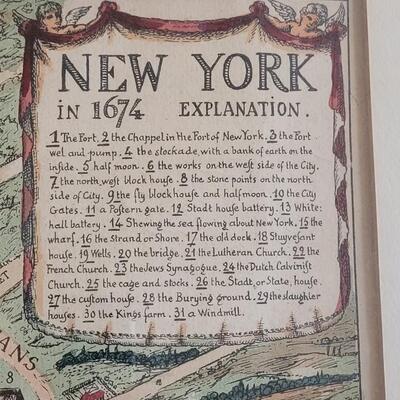 NEW YORK
in 1674 EXPLANATION.
1 The Fort. 2 the Chappel in the Fort of New York. 3 the Fort
wel and pump. 4 the stockade, with a bank of earth on the
inside. 5 half moon. 6 the works on the west side of the City.
7 the north, west block house. 8 the stone points on the north
side of City. 9 the fly block house and half moon. 10 the City
Gates. 11 a Postern gate. 12 Stadt house battery. 13 White:
hall battery. 14 Shewing the sea flowing about New York. 15 the
wharf. 16 the Strand or Shore. 17 the old dock. 18 Stuyvesant
house. 19 Wells. 20 the bridge. 21 the Lutheran Church. 22 the
French Church. 23 the Jews Synagogue. 24 the Dutch Calvinist
Church. 25 the cage and stocks. 26 the Stadt, or State, house.
27 the custom house. 28 the Burying ground. 29 the slaughter
houses. 30 the Kings farm. 31 a Windmill.
ET
ANS
8